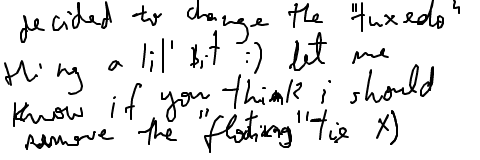 decided to change the "tuxedo"
thing a lil' bit :) let me
know if you think i should
remove the "floating" tie x)